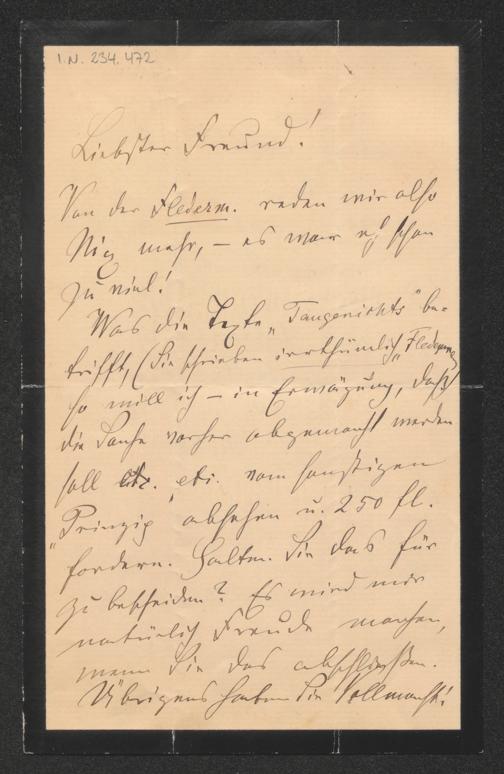 I.N. 234.472
Liebster Freund!
Von der Flederm. reden wir also
Nix mehr, – es war eh schon
zu viel!
Was die Texte „Taugenichts" be-
trifft, (Sie schrieben irrthümlich „Flederm."
so will ich – in Erwägung, daß
die Sache vorher abgemacht werden
soll etc. etc. vom sonstigen
„Prinzip" absehen u. 250 fl.
fordern. Halten Sie das für
zu bescheiden? Es wird mir
natürlich Freude machen,
wenn Sie das abschließen.
Übrigens haben Sie Vollmacht!